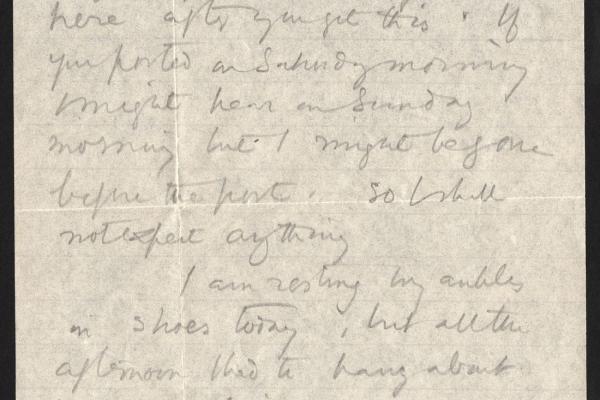 here after you get this. If
you posted on Saturday morning
I might hear on Sunday
morning but I might be gone
before the post. So I shall
not expect anything
I am resting my ankles
in shoes today, but all the
afternoon I had to hang about